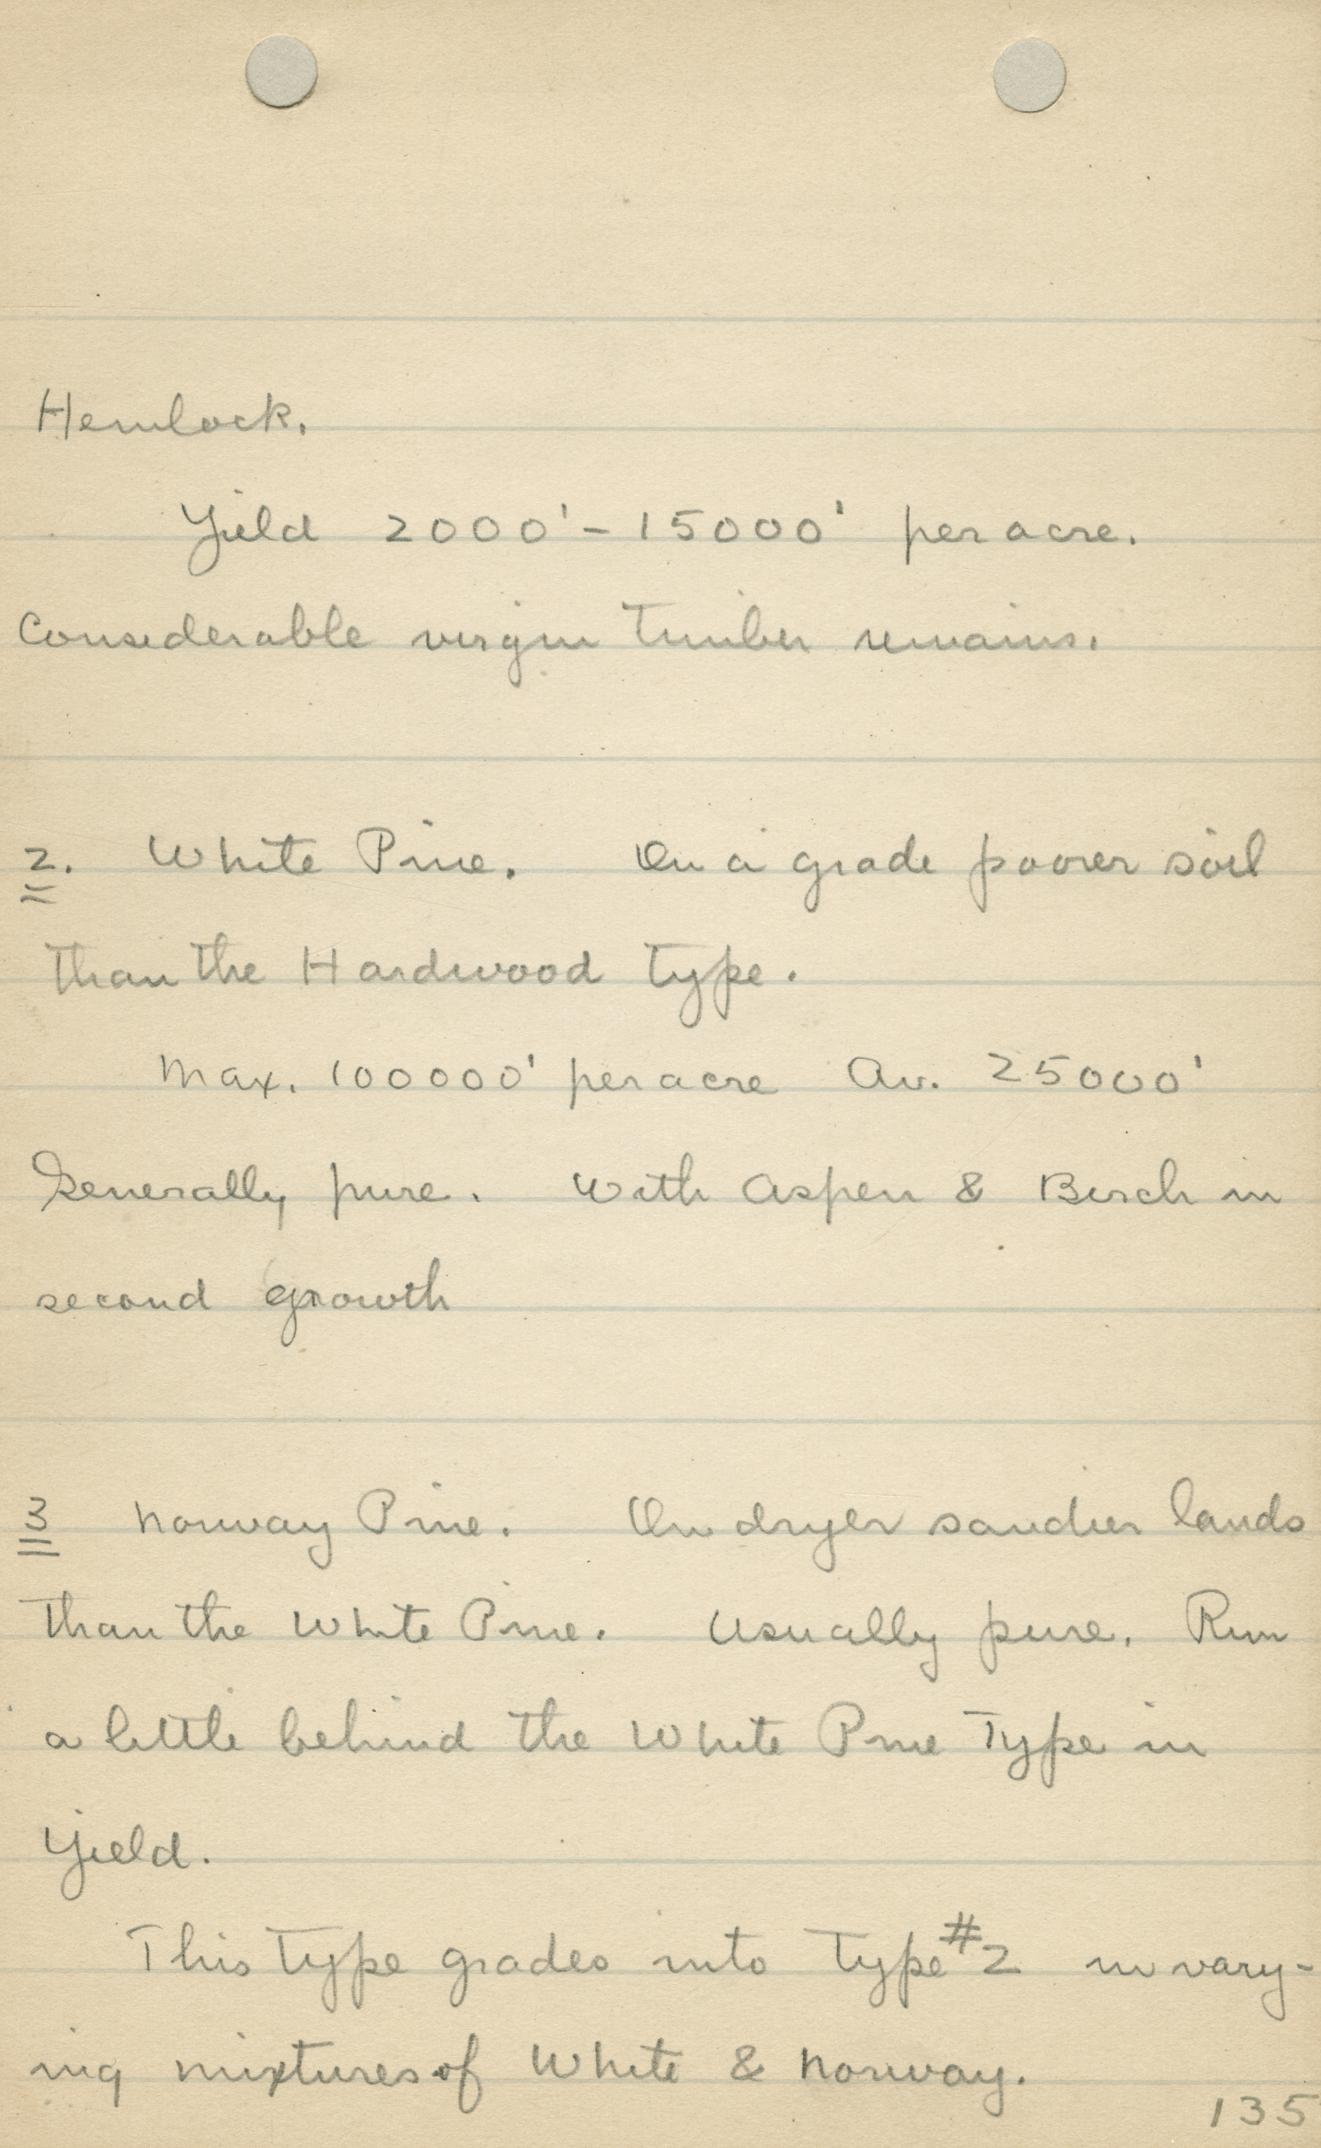 Hemlock.
Yield 2000' - 15000' per acre.
Considerable virgin timber remains.
2. White Pine. On a grade poorer soil
than the Hardwood type.
Max. 100000' per acre Av. 25000'
Generally pure. With Aspen & Birch in
second growth
3 Norway Pine. On dryer sandier lands
than the White Pine. Usually pure. Run
a little behind the White Pine Type in
yield.
This type grades into type #2 in vary-
ing mixtures of White & Norway.
135